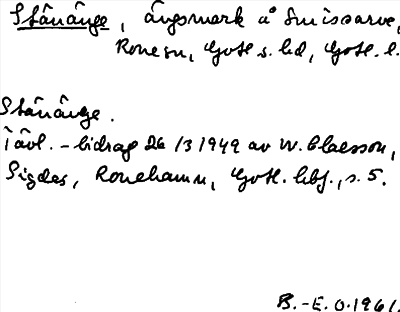 Stänänge, ängsmark å Smissarve,
Ronesn, Gotl s. hd, Gotl. l.
Stänänge.
Tävl. - bidrag 26/3 1949 av W. Claesson,
Sigdes, Ronehamn, Gotl. hbf., s. 5.
B. - E. O. 1961.